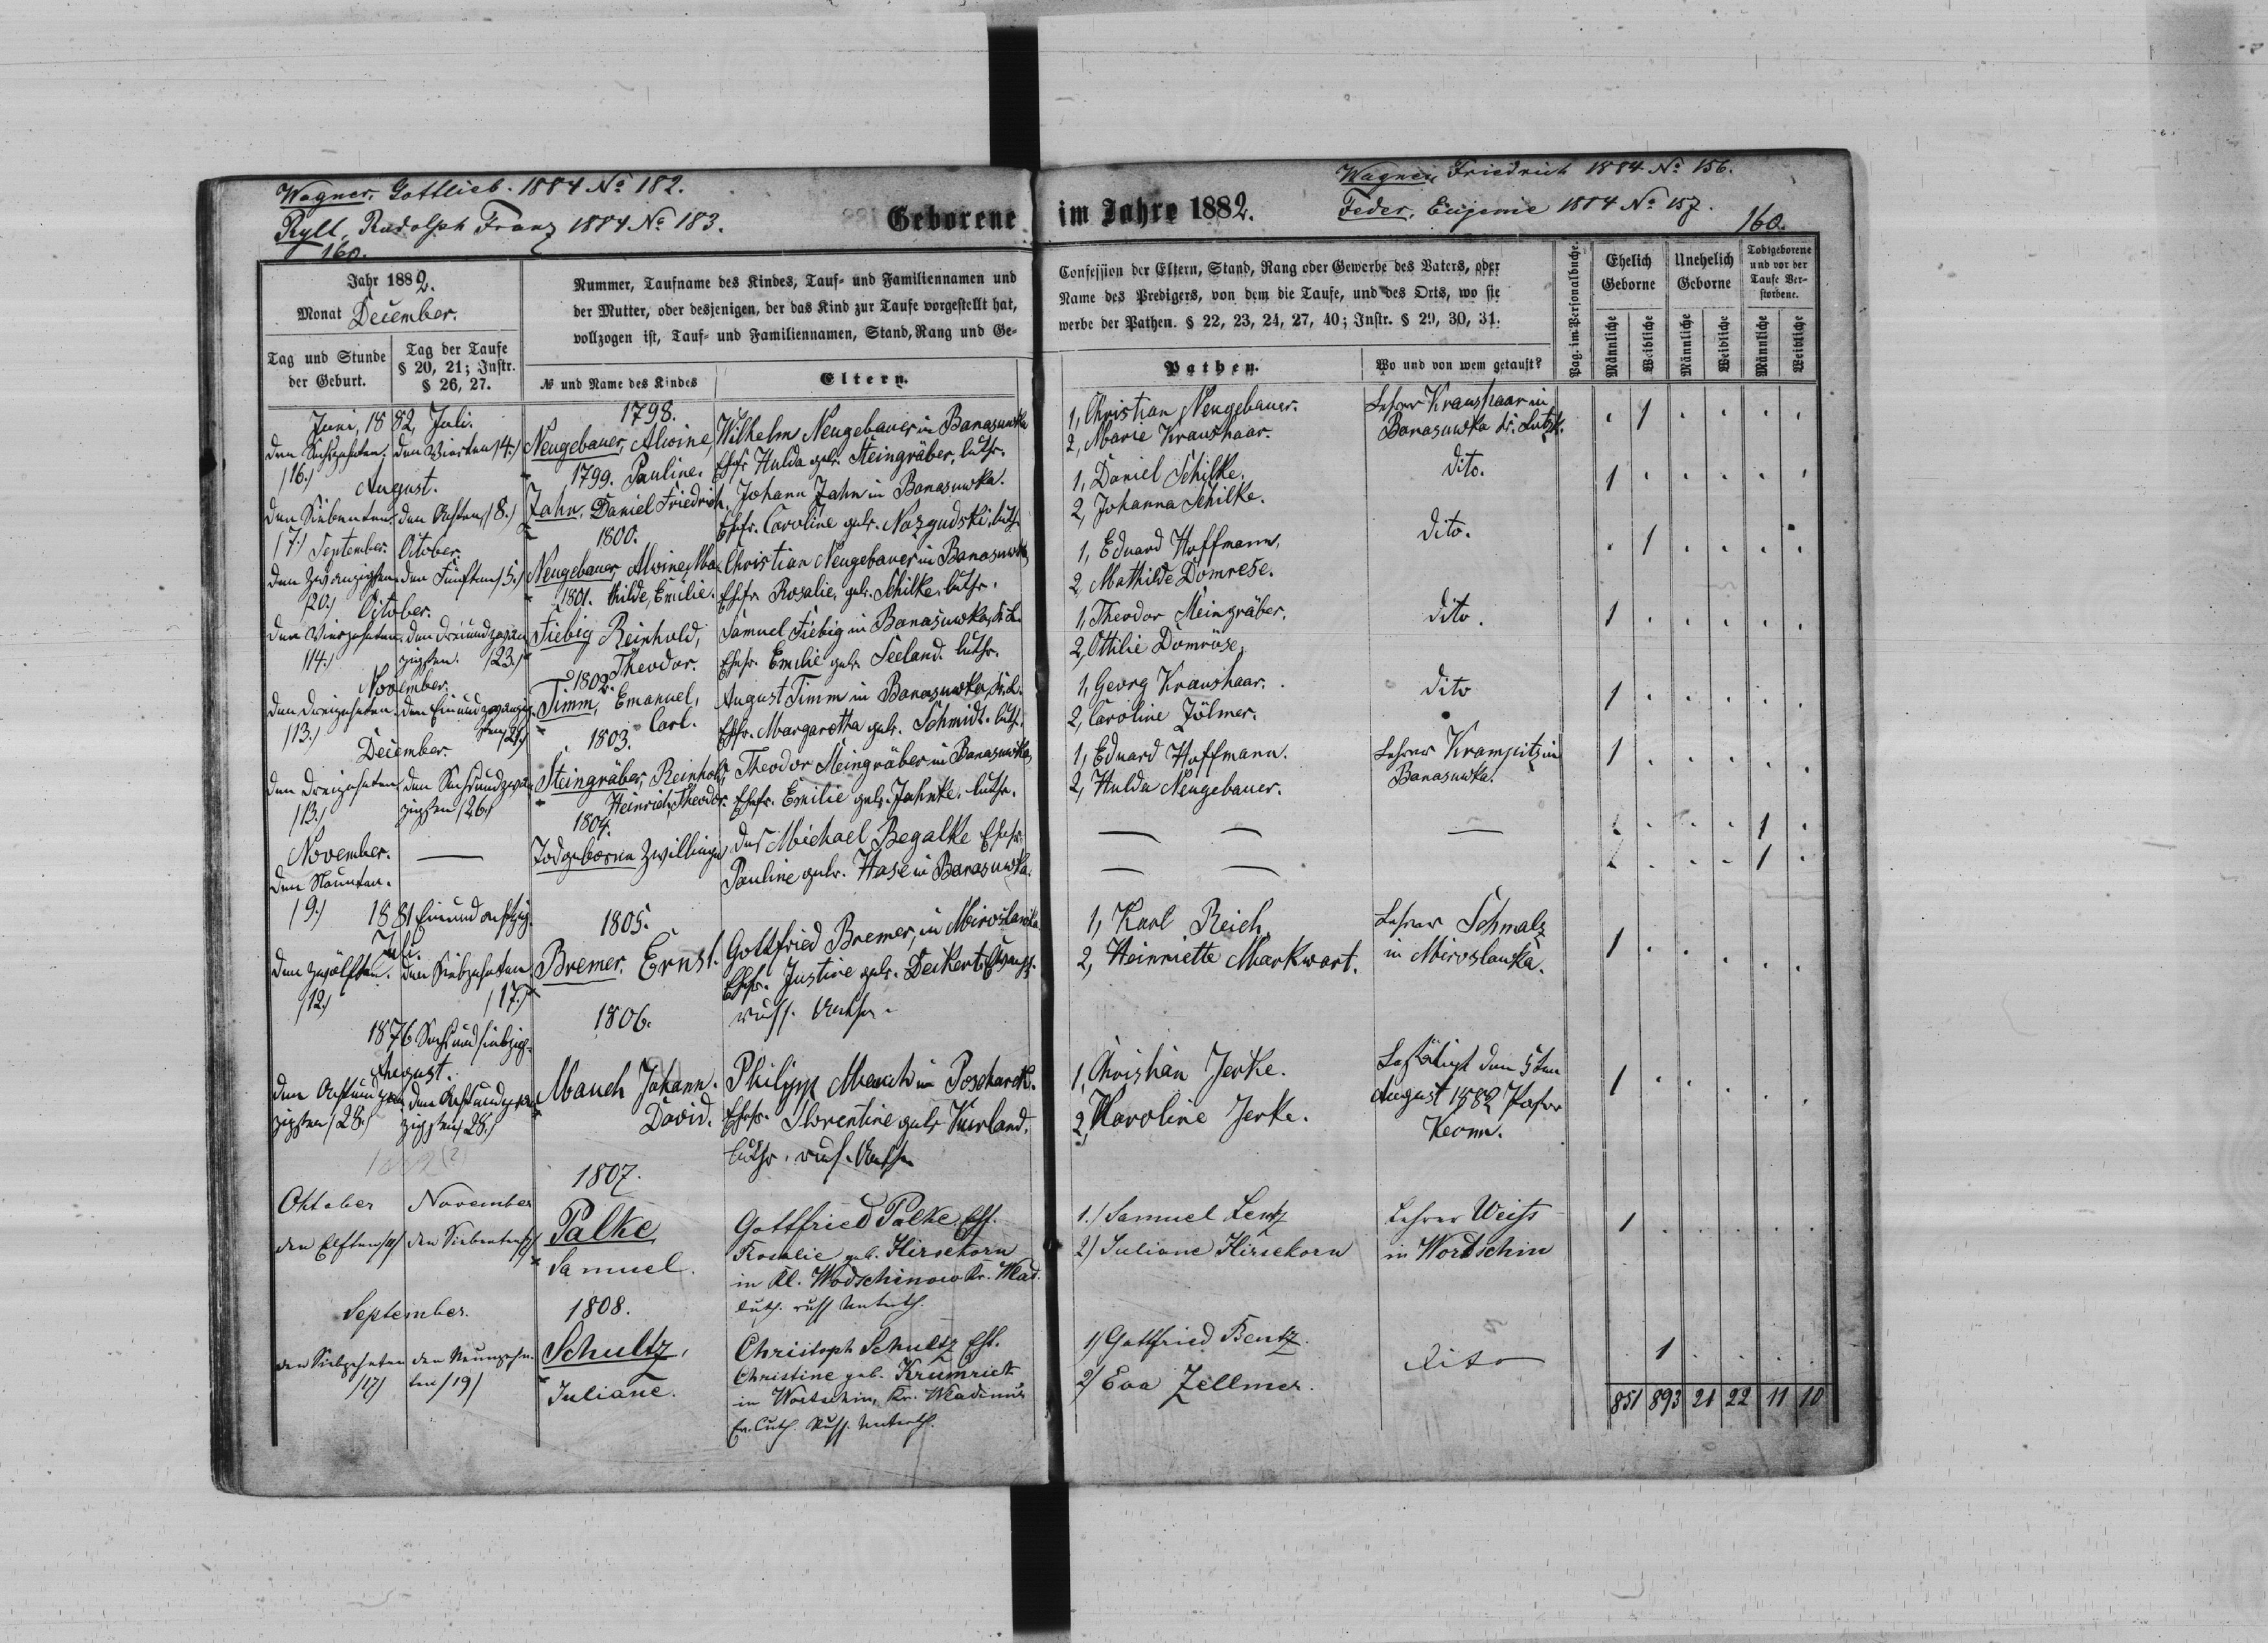 Wagner, Gottlieb. 1884 No 182.
Rylt, Rudolph Franz 1884 No 183.
160.
Geborene
Jahr 1882.
Monat December.
Tag und Stunde der Geburt.
Tag der Taufe § 20, 21; Instr. § 26, 27.
Nummer, Taufname des Kindes, Tauf- und Familiennamen und
der Mutter, oder desjenigen, der das Kind zur Taufe vorgestellt hat,
vollzogen ist, Tauf- und Familiennamen, Stand, Rang und Ge-
№ und Name des Kindes
Eltern.
Juni, 1882, Juli.
den Sechszehnten. den Vierten /4./
/16./
1798.
Neugebauer, Alwine,
Pauline.
Wilhelm Neugebauer in Banasuwka
Ehefr. Hulda geb. Steingräber, luthr.
August.
den Siebenten den Achten /8./
/7./
1799.
Zahn, Daniel Friedrich,
Johann Zahn in Banasuwka.
Ehefr. Caroline geb. Nazgudski, luth.
September. October.
den Zwanzigsten den Fünften /5./
/20./
1800.
Neugebauer, Alwine, Ma-
thilde, Emilie.
Christian Neugebauer in Banasuwk
Ehefr. Rosalie, geb. Schilke, luthr.
October.
den Vierzehnten den Dreiundzwan
/14./ zigsten. /23./
1801.
Fiebig Reinhold,
Theodor.
Samuel Fiebig in Banasuwka, Kr. L.
Ehefr. Emilie geb. Seeland. luthr.
November.
den Dreizehnten den Einundzwanzig
/13./ sten /21./
1802.
Timm, Emanuel,
Carl.
August Timm in Banasuwka, Kr. L.
Ehefr. Margaretha geb. Schmidt. luth.
December.
den Dreizehnten den Sechsundzwan
/13./ zigsten /26./
1803.
Steingräber, Reinhold,
Heinrich, Theodor.
Theodor Steingräber in Banasuwka,
Ehefr. Emilie geb. Jahnke. luthr.
November.
den Neunten.
/9./
1804.
Todgeborene Zwillinge
des Michael Begalke Ehefr.
Pauline geb. Hase in Banasuwka.
1881 Einundachtzig.
Juli.
den Zwölften. den Siebzehnten
/12./ /17./
1805.
Bremer, Ernst.
Gottfried Bremer, in Miroslawka
Ehefr. Justine geb. Deikert, Evang.
russ. Unthr.
1876 Sechsundsiebzig.
August.
den Achtundzwan den Achtundzwan
zigsten /28./ zigsten /28./
1806.
Mauch Johann.
David.
Philipp Mauch in Poscharek.
Ehefr. Florentine geb. Kurland.
luthr. russ. Unthr.
1882(?)
Oktober November
den Elften /11/ den Siebenten /7/
1807.
Palke
Samuel.
Gottfried Palke. Ehf.
Rosalie geb. Hirsekorn
in Kl. Wodschinow Kr. Wlad.
luth. russ Unterth.
September.
den Siebzehnten den Neunzehn-
/17/ ten /19/
1808.
Schultz,
Juliane.
Christoph Schultz Ehf.
Christine geb. Krumrick
in Wortschin, Kr. Wladimir
Ev. Luth. Russ. Unterth.
Wagner, Friedrich 1884 No 156.
Feder, Eugenie 1884 No 157.
160.
im Jahre 1882.
Confession der Eltern, Stand, Rang oder Gewerbe des Vaters, oder
Name des Predigers, von dem die Taufe, und des Orts, wo sie
werbe der Pathen. § 22, 23, 24, 27, 40; Instr. § 29, 30, 31.
Pathen.
Wo und von wem getauft?
Pag. im Personalbuche.
Ehelich Geborne
Unehelich Geborne
Todtgeborene und vor der Taufe Verstorbene.
Männliche
Weibliche
Männliche
Weibliche
Männliche
Weibliche
1, Christian Neugebauer.
2, Marie Kraushaar.
Lehrer Kraushaar in
Banasuwka Kr. Lutzk.
1
1, Daniel Schilke.
2, Johanna Schilke.
dito.
1
1, Eduard Hoffmann,
2, Mathilde Domrese.
dito.
1
1, Theodor Steingräber.
2, Ottilie Domröse,
dito.
1
1, Georg Kraushaar.
2, Caroline Zölmer.
dito
1
1, Eduard Hoffmann.
2, Hulda Neugebauer.
Lehrer Krampitz in
Banasuwka.
1
1
1
1, Karl Reich,
2, Heinriette Markwart.
Lehrer Schmalz
in Miroslawka.
1
1, Christian Jerke.
2, Karoline Jerke.
Bestätigt den 5ten
August 1882 Pastor
Kerm.
1
1./ Samuel Lentz
2/ Juliane Hirsekorn
Lehrer Weiss
in Wordschin
1
1/ Gottfried Bentz.
2/ Eva Zellmer.
dito
1
851 893 21 22 11 10